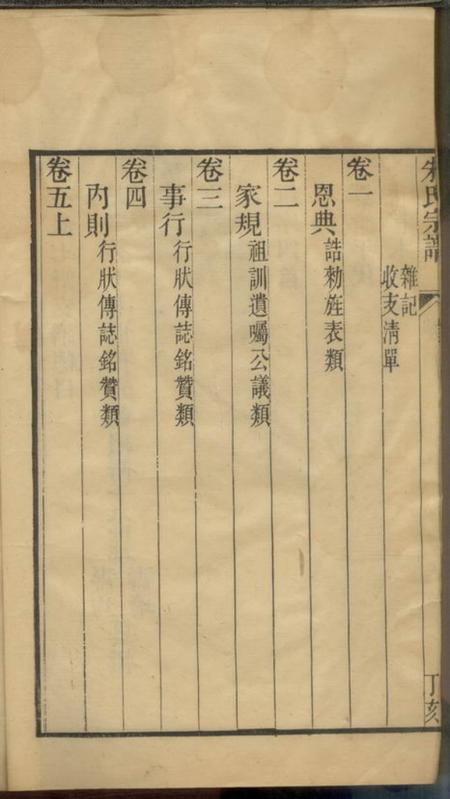 朱氏宗譜
丁亥
雜記
收支清單
卷一
恩典 誥勑旌表類
卷二
家規 祖訓遺囑公議類
卷三
事行 行狀傳誌銘贊類
卷四
內則 行狀傳誌銘贊類
卷五上